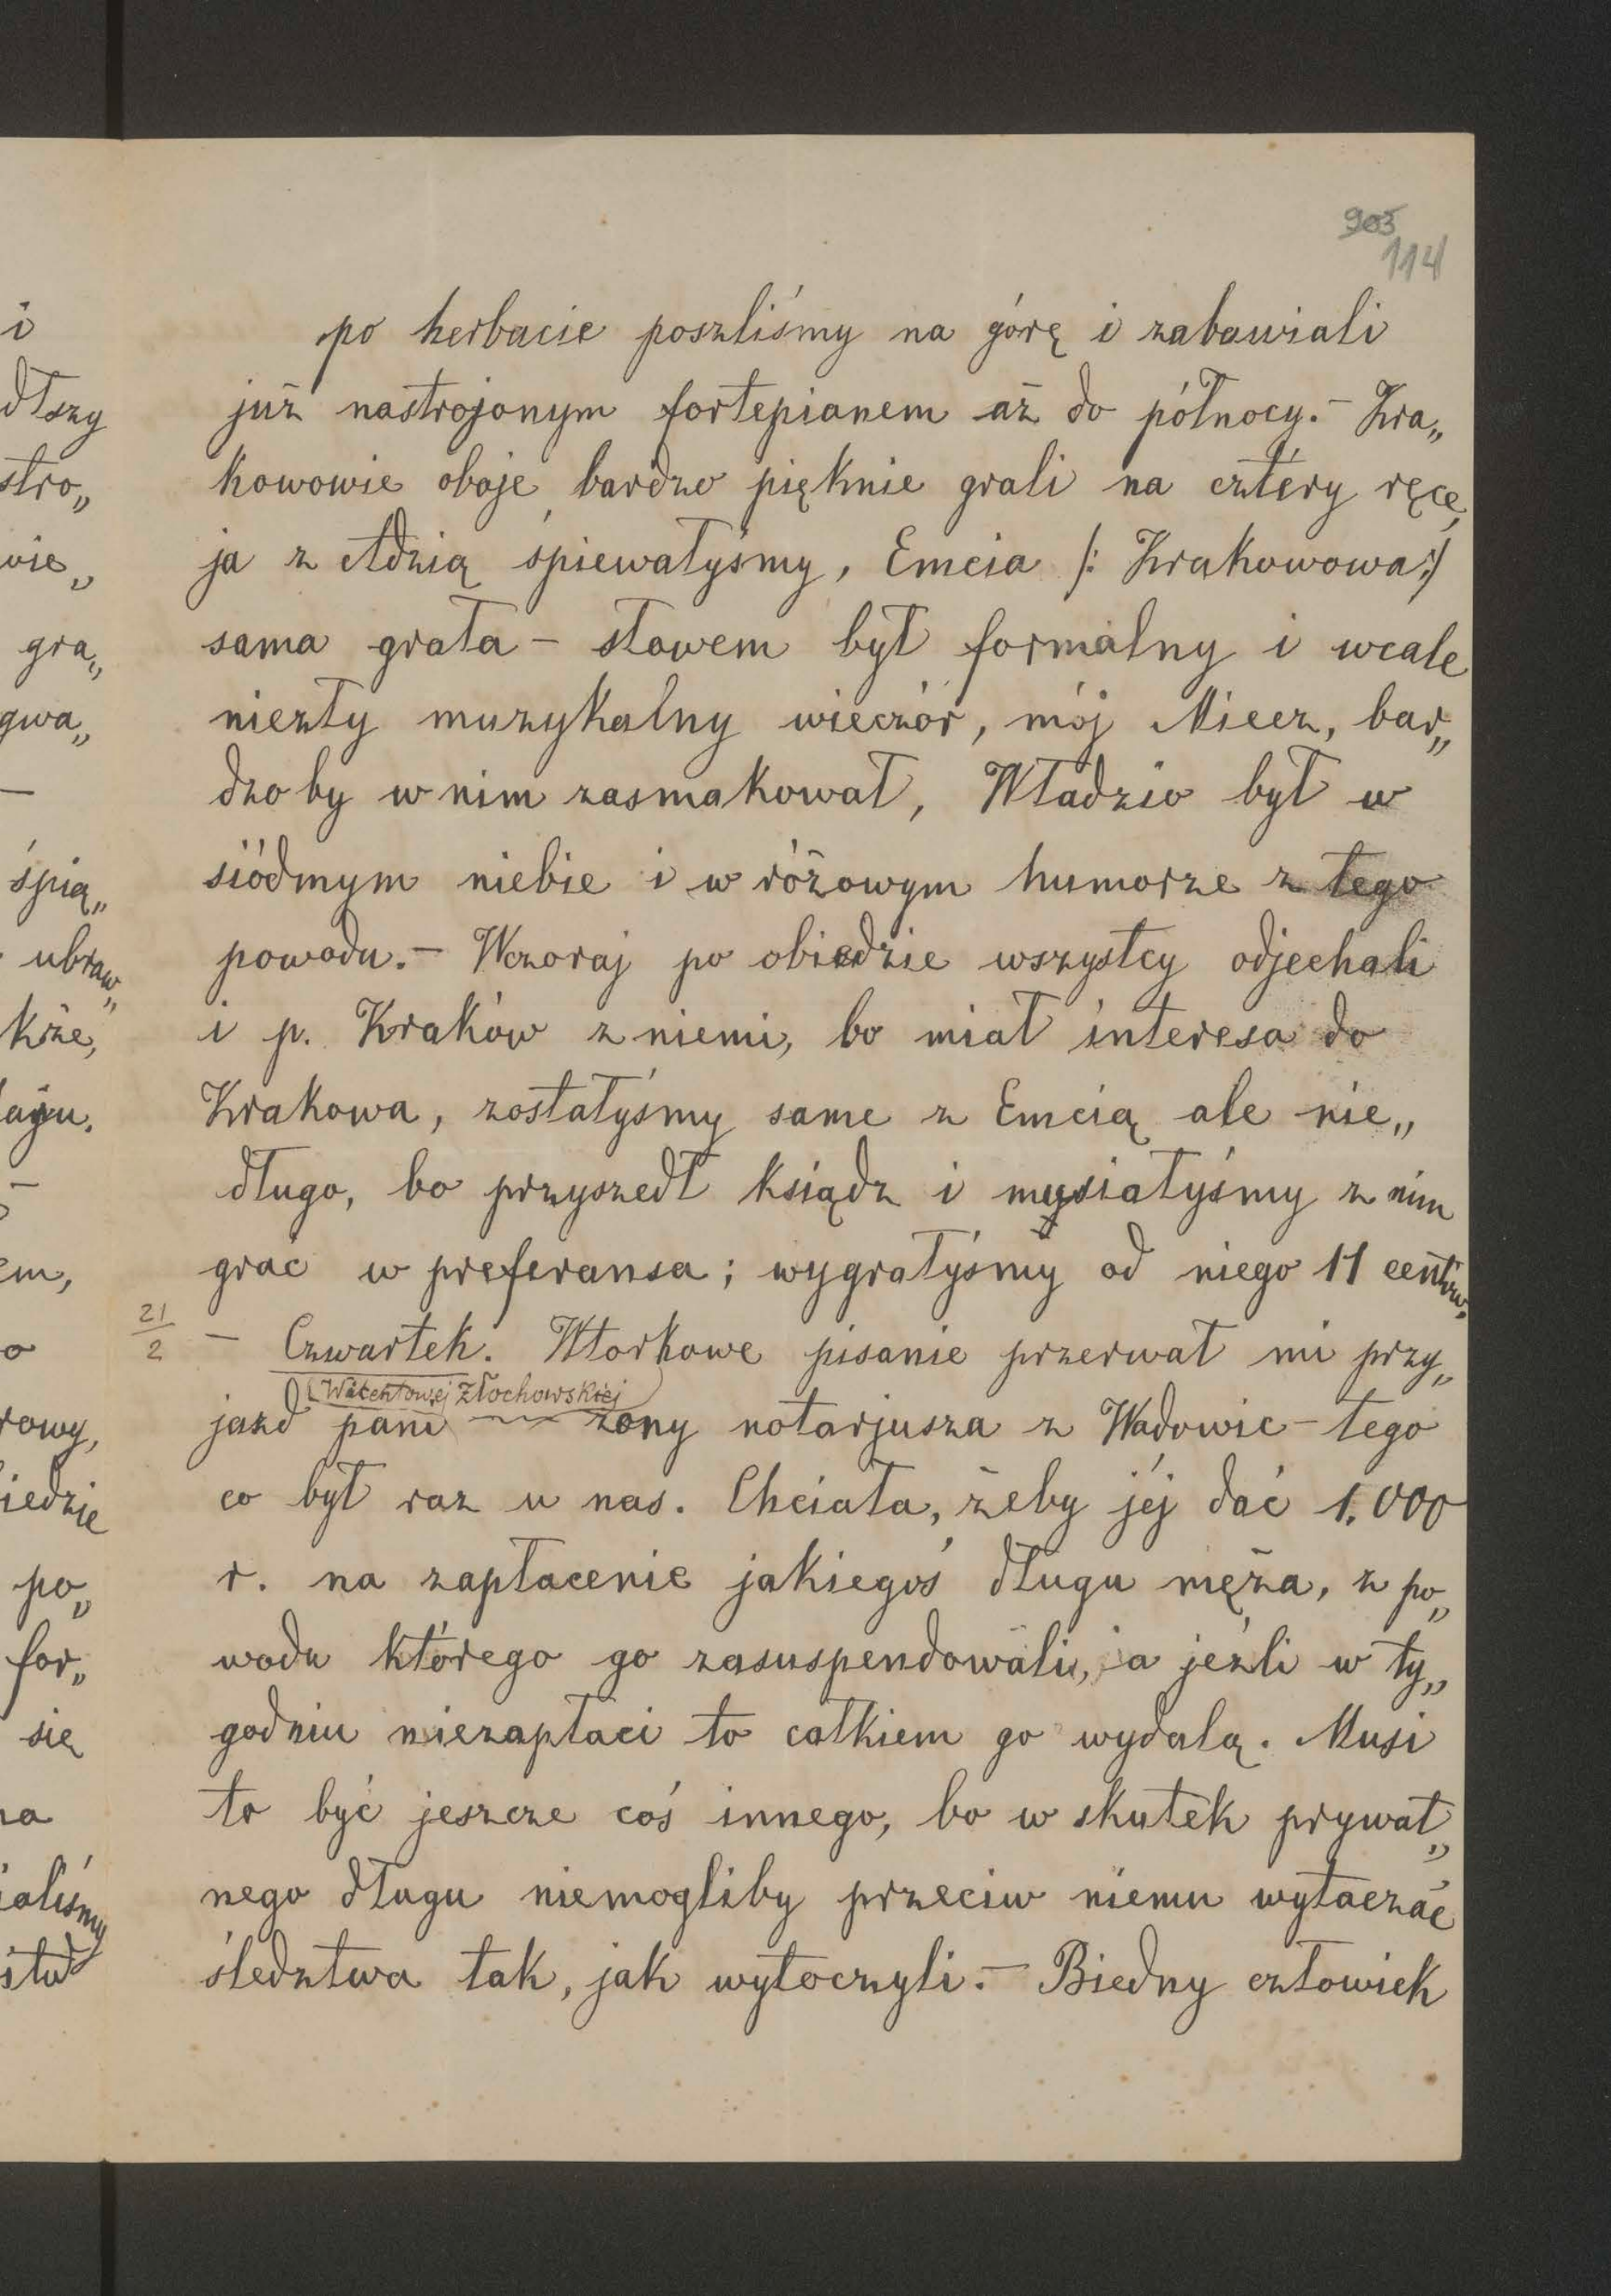 903
114
po herbacie poszliśmy na górę i zabawiali
już nastrojonym fortepianem aż do północy. – Kra„
kowowie oboje bardzo pięknie grali na cztéry ręce,
ja z Adzią śpiewałyśmy, Emcia /: Krakowowa :/
sama grała – słowem był formalny i wcale
niezły muzykalny wieczór, mój Miecz, bar„
dzo by w nim zasmakował, Władzio był w
siódmym niebie i w różowym humorze z tego
powodu. – Wczoraj po obiedzie wszystcy odjechali
i p. Kraków z niemi, bo miał interesa do
Krakowa, zostałyśmy same z Emcią ale nie„
długo, bo przyszedł ksiądz i musiałyśmy z nim
grać w preferansa; wygrałyśmy od niego 11 centów.
21/2 – Czwartek. Wtorkowe pisanie przerwał mi przy„
(Wincentowej Złochowskiej)
jazd pani żony notarjusza z Wadowic – tego
co był raz u nas. Chciała, żeby jéj dać 1.000
r. na zapłacenie jakiegoś długu męża, z po„
wodu którego go zasuspendowali, a jeźli w ty„
godniu niezapłaci to całkiem go wydalą. Musi
to być jeszcze coś innego, bo w skutek prywat„
nego długu niemogliby przeciw niemu wytaczać
śledztwa tak, jak wytoczyli. – Biedny człowiek
i
dłszy
stro„
wie„
gra„
gwa„
–
śpią„
ubraw„
kże,
em,
o
rowy,
iedzie
po„
for„
się
na
ialiśmy